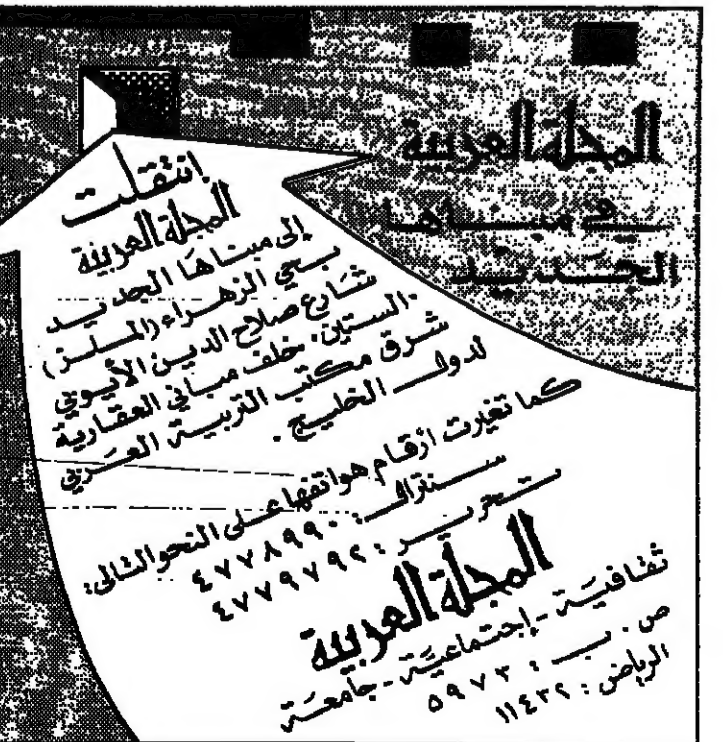 المجلة العربية
في مبناها
الجديد
إنتقلت
المجلة العربية
إلى مبناها الجديد
بحي الزهراء (الملز)
شارع صلاح الدين الأيوبي
الستين. خلف مباني العقارية
شرق مكتب التربية العربي
لدول الخليج.
كما تغيرت أرقام هواتفها على النحو التالي:
سنترال: ٤٧٧٨٩٩٠
تحرير: ٤٧٧٩٧٩٢
المجلة العربية
ثقافية - إجتماعية - جامعة
ص. ب: ٥٩٧٣
الرياض: ١١٤٣٢